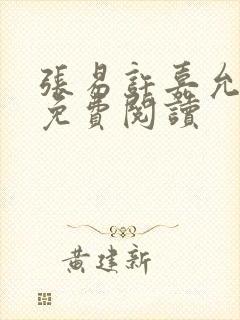 張易許嘉允
免費閱讀
黃建新